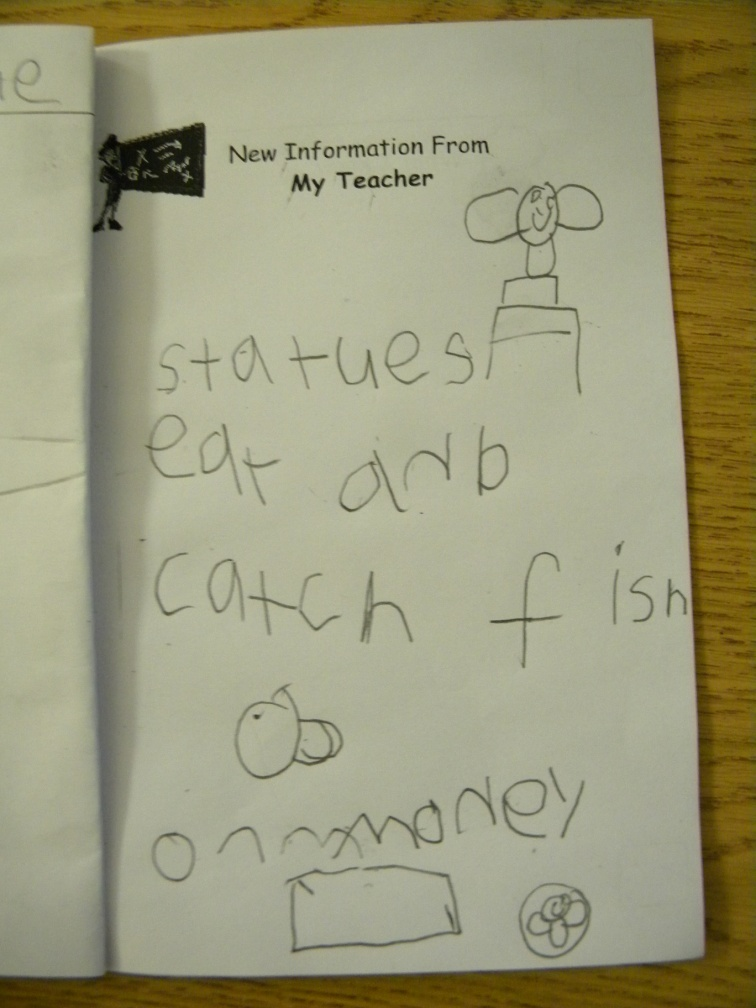 e
New Information From
My Teacher
statues
eat and
catch fish
on money